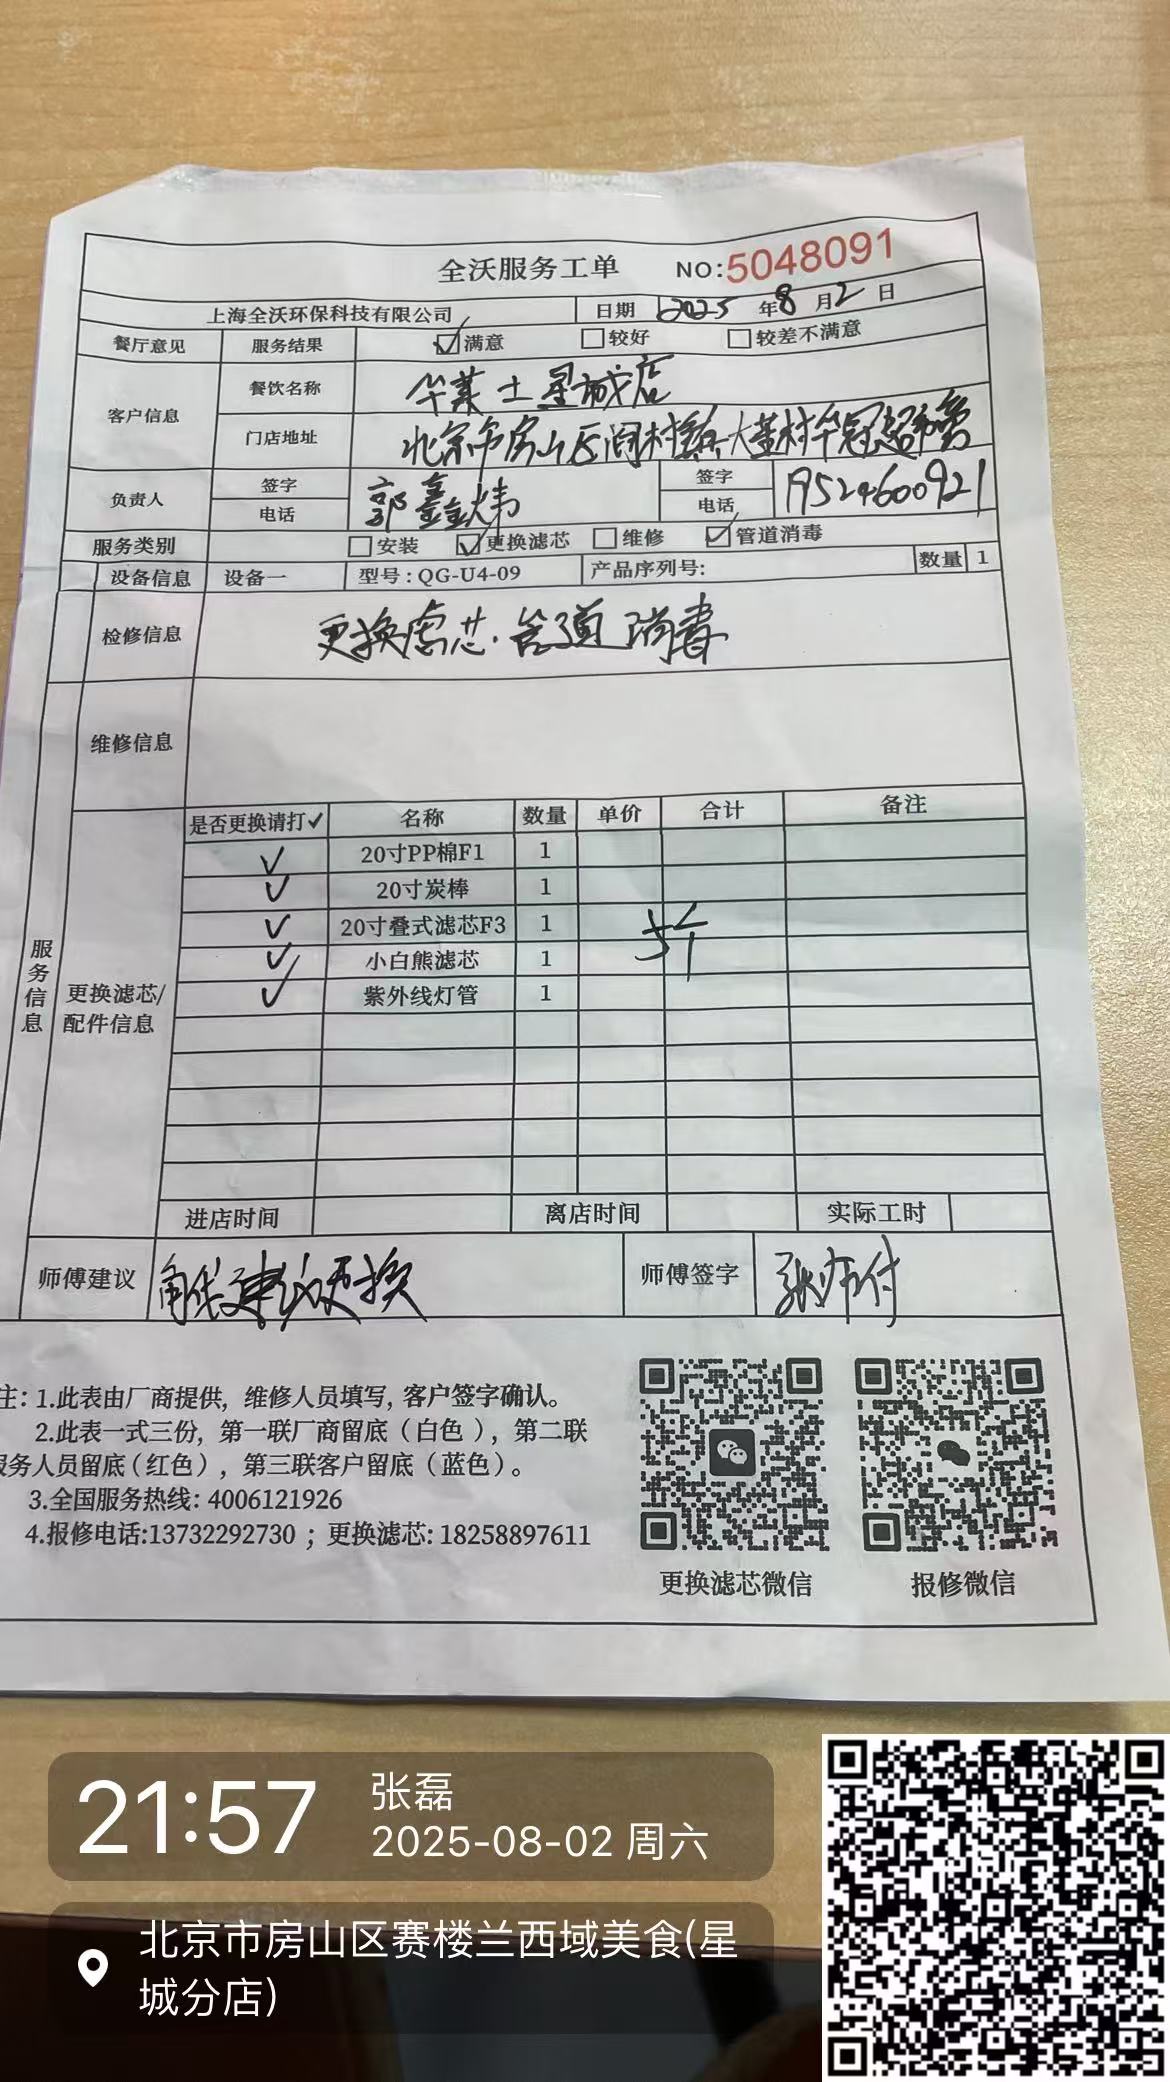 全沃服务工单 NO:5048091
上海全沃环保科技有限公司 日期 2025 年 8 月 2 日
餐厅意见 服务结果 ☑满意 ☐较好 ☐较差不满意
客户信息 餐饮名称 华莱士星城店
门店地址 北京市房山区阎村镇大董村华冠超市旁
负责人 签字 郭鑫炜 签字
电话 电话 19524600921
服务类别 ☐安装 ☑更换滤芯 ☐维修 ☑管道消毒
设备信息 设备一 型号:QG-U4-09 产品序列号: 数量 1
检修信息 更换滤芯.管道消毒
维修信息
服务信息
更换滤芯/
配件信息
是否更换请打✓ 名称 数量 单价 合计 备注
✓ 20寸PP棉F1 1
✓ 20寸炭棒 1
✓ 20寸叠式滤芯F3 1
✓ 小白熊滤芯 1
✓ 紫外线灯管 1
进店时间 离店时间 实际工时
师傅建议 建议更换 师傅签字
注: 1.此表由厂商提供, 维修人员填写, 客户签字确认。
2.此表一式三份, 第一联厂商留底（白色）, 第二联
服务人员留底（红色）, 第三联客户留底（蓝色）。
3.全国服务热线: 4006121926
4.报修电话:13732292730 ; 更换滤芯: 18258897611
更换滤芯微信 报修微信
21:57
张磊
2025-08-02 周六
北京市房山区赛楼兰西域美食(星
城分店)